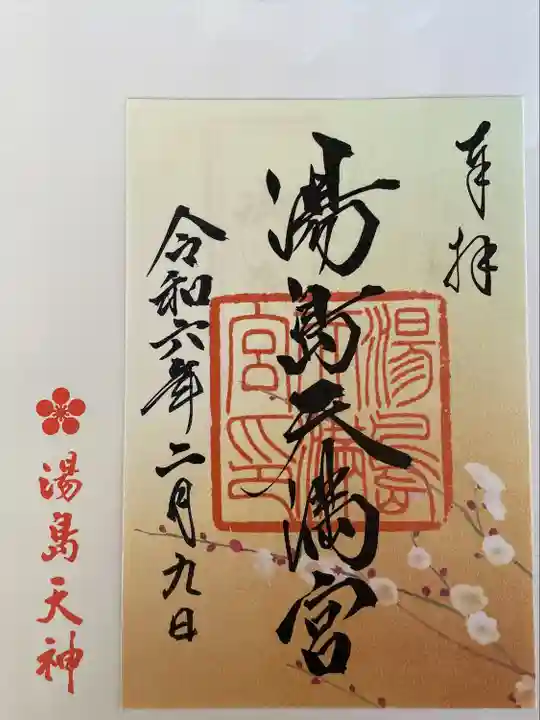 奉拝
湯島天満宮
湯島天満宮印
令和六年二月九日
湯島天神